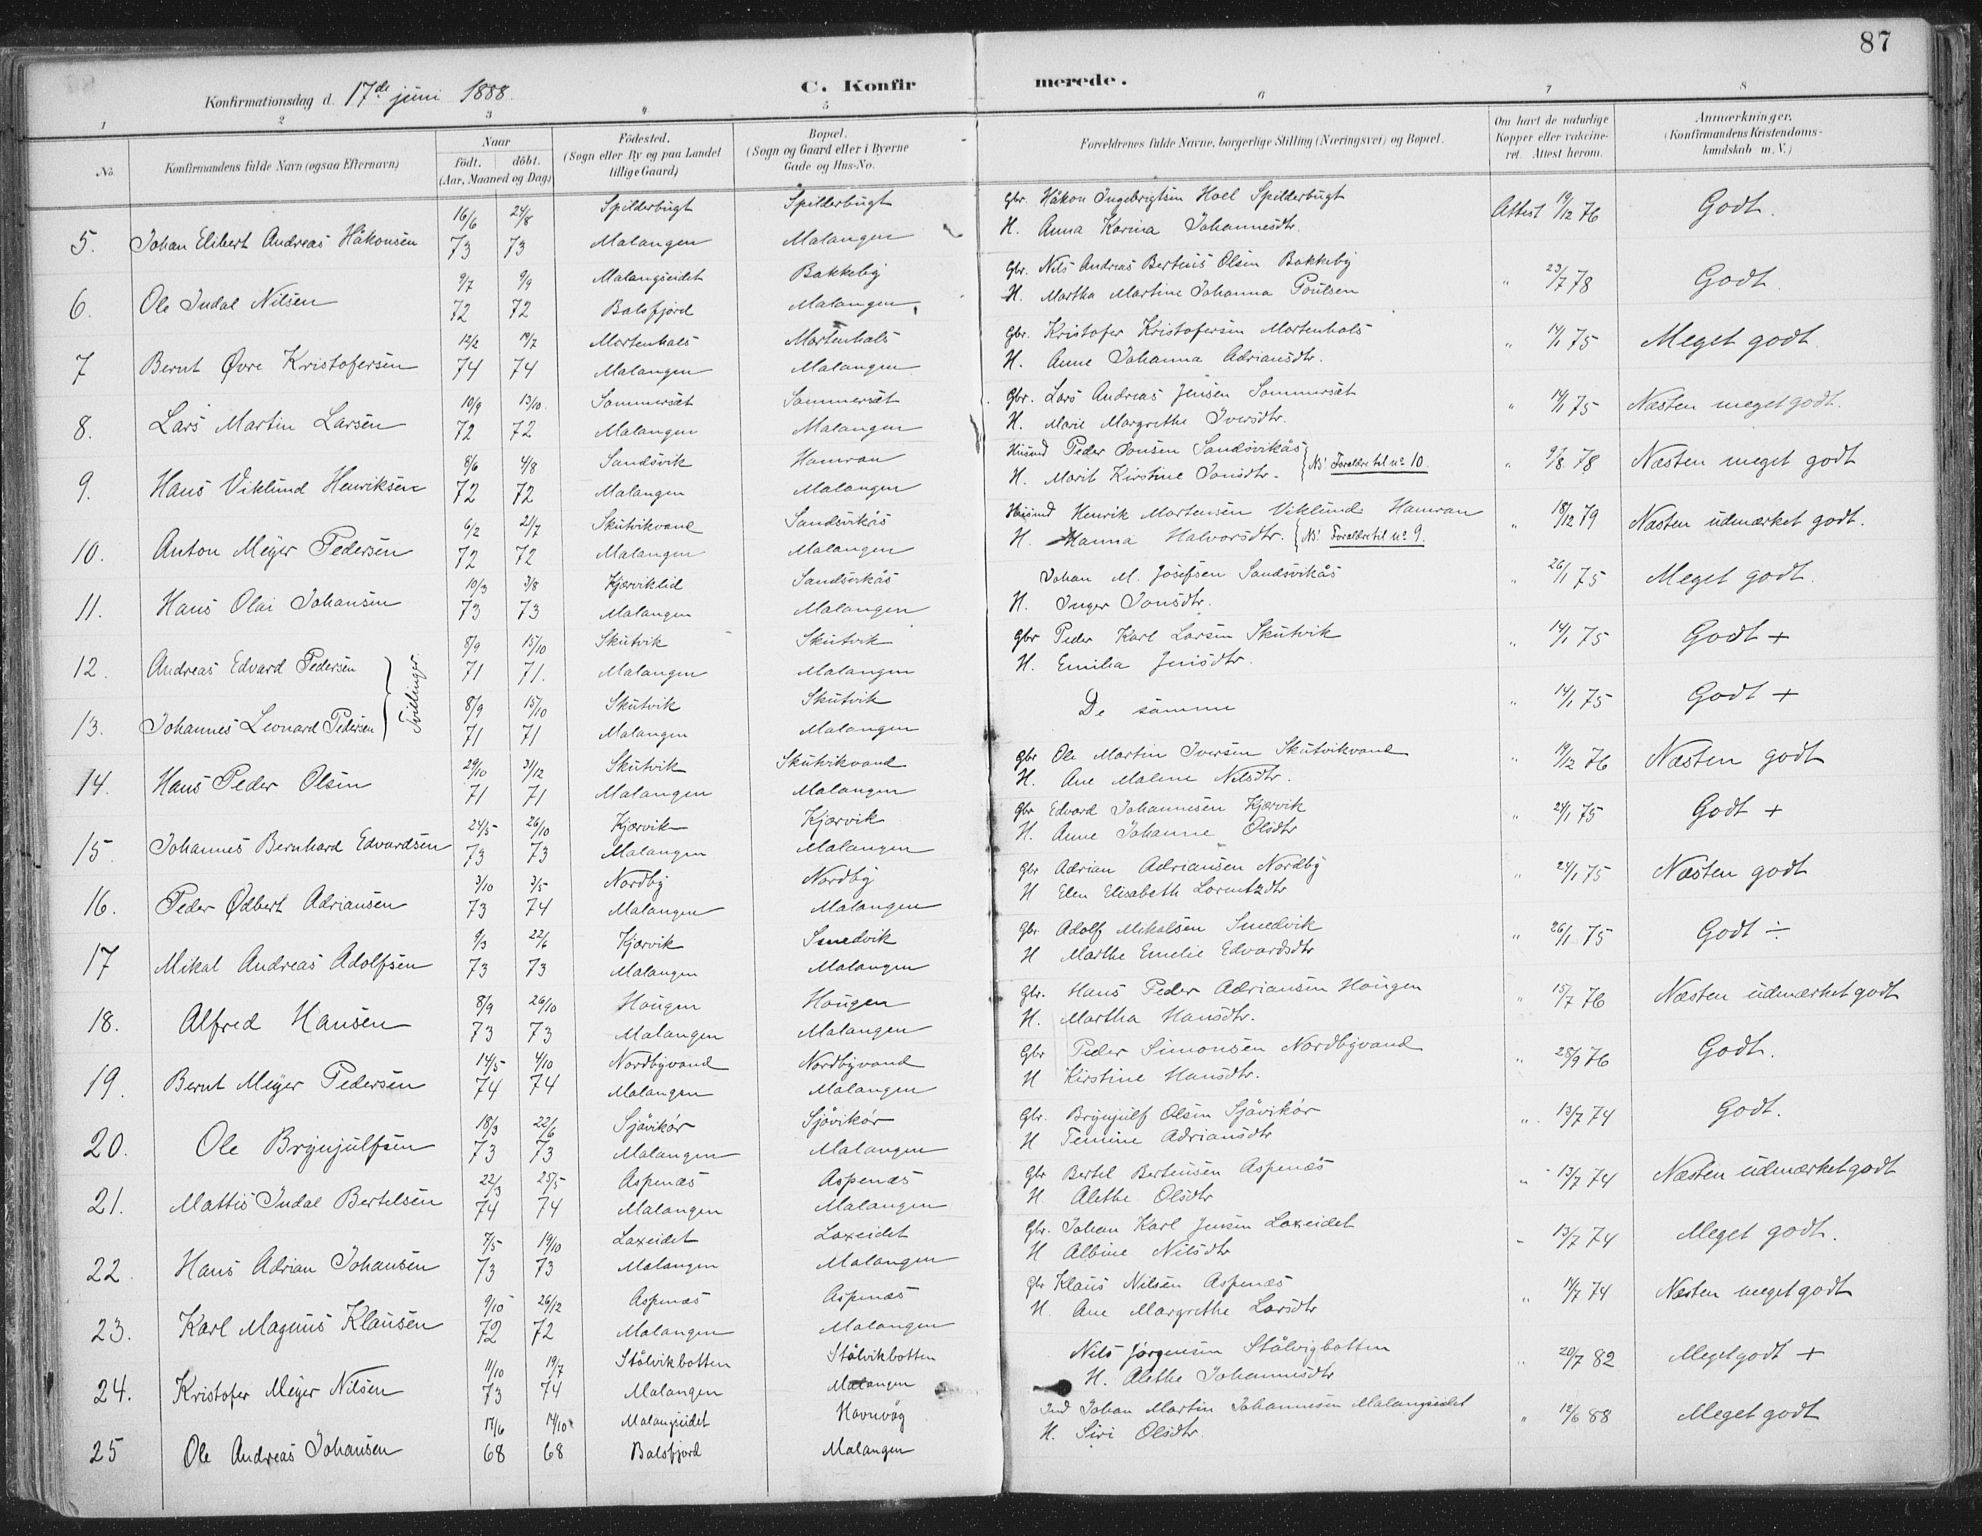 87
Konfirmationsdag d. 17de juni 1888. C. Konfirmerede.
1 2 3 4 5 6 7 8
No. Konfirmandens fulde Navn (ogsaa Efternavn) Naar födt. döbt. (Aar, Maaned og Dag) Födested. (Sogn eller By og paa Landet tillige Gaard) Bopæl. (Sogn og Gaard eller i Byerne Gade og Hus-No. Forældrenes fulde Navne, borgerlige Stilling (Næringsvei) og Bopæl. Om havt de naturlige Kopper eller vaccineret. Attest herom. Anmærkninger. (Konfirmandens Kristendomskundskab m. V.)
16/6 24/8 Spilderbugt Spilderbugt Gbr. Håkon Ingebrigtsen Hoel Spilderbugt Attest 19/12 76 Godt.
5. Johan Elibert Andreas Håkonsen 73 73 Malangen Malangen H. Anna Karina Johannesdtr.
9/7 9/9 Malangseidet Bakkeby Gbr. Nils Andreas Bertius Olsen Bakkeby " 23/7 78 Godt.
6. Ole Indal Nilsen 72 72 Balsfjord Malangen H. Martha Martine Johanna Poulsen
12/2 19/7 Mortenhals Mortenhals Gbr. Kristofer Kristofersen Mortenhals " 14/1 75 Meget godt.
7 Bernt Øvre Kristofersen 74 74 Malangen Malangen H. Anne Johanna Adriansdtr.
10/9 13/10. Sommersæt Sommersæt Gbr. Lars Andreas Jensen Sommersæt " 14/1 75 Næsten meget godt.
8. Lars Martin Larsen 72 72 Malangen Malangen H. Marie Margrethe Iversdtr.
8/6 4/8 Sandsvik Hamran Husmd Peder Jonsen Sandsvikås " 9/8 78 Næsten meget godt
9. Hans Viklund Henriksen 72 72 Malangen Malangen H. Marit Kirstine Jonsdtr. { NB! Forældre til no 10.
6/2 21/7 Skutvikvand Sandsvikås Husmd Henrik Mortensen Viklund Hamran " 18/12 79 Næsten udmærket godt.
10. Anton Meyer Pedersen 72 72 Malangen Malangen H. Hanna Halvorsdtr. { NB! Forældre til no 9.
10/3 3/8 Kjærviklid Sandsvikås Johan M. Josefsen Sandsvikås " 26/1 75 Meget godt.
11. Hans Olai Johansen 73 73 Malangen Malangen H. Inger Jonsdtr.
8/9 15/10 Skutvik Skutvik Gbr Peder Karl Larsen Skutvik " 14/1 75 Godt +
12. Andreas Edvard Pedersen } Tvillinger. 71 71. Malangen Malangen H. Emilia Jensdtr.
8/9 15/10 Skutvik Skutvik De samme " 14/1 75 Godt +
13. Johannes Leonard Pedersen 71 71 Malangen Malangen
29/10 31/12 Skutvik Skutvikvand Gbr Ole Martin Iversen Skutvikvand " 19/12 76 Næsten godt
14. Hans Peder Olsen 71 71 Malangen Malangen H. Ane Malene Nilsdtr.
24/5 26/10 Kjærvik Kjærvik Gbr Edvard Johannesen Kjærvik " 24/1 75 Godt +
15. Johannes Bernhard Edvardsen 73 73 Malangen Malangen H. Anne Johanne Olsdtr
3/10 3/5 Nordby Nordby Gbr Adrian Adriansen Nordby " 24/1 75 Næsten godt
16. Peder Ødbert Adriansen 73 74 Malangen Malangen H Elen Elisabeth Lorentzdtr
9/3 22/6 Kjærvik Smedvik Gbr. Adolf Mikalsen Smedvik " 26/1 75 Godt ÷
17 Mikal Andreas Adolfsen 73 73 Malangen Malangen H Marthe Emelie Edvardsdtr
8/9 26/10 Hougen Hougen Gbr. Hans Peder Adriansen Hougen " 15/7 76 Næsten udmærket godt
18. Alfred Hansen 73 73 Malangen Malangen H. Martha Hansdtr.
14/5 4/10 Nordbyvand Nordbyvand Gbr Peder Simonsen Nordbyvand " 28/9 76 Godt.
19. Bernt Meyer Pedersen 74 74 Malangen Malangen H Kirstine Hansdtr.
18/3 22/6 Sjåvikør Sjåvikør Gbr. Brynjulf Olsen Sjåvikør " 13/7 74 Godt.
20. Ole Brynjulfsen 73 73 Malangen Malangen H Adriansdtr
22/3 25/5 Aspenæs Aspenæs Gbr Bertel Bertensen Aspenæs " 13/7 74 Næsten udmærket godt
21. Mattis Indal Bertelsen 74 74 Malangen Malangen H. Alethe Olsdtr
7/5 19/10 Laxeidet Laxeidet Gbr. Johan Karl Jensen Laxeidet " 13/7 74 Meget godt.
22. Hans Adrian Johansen 73 73 Malangen Malangen H Albine Nilsdtr
9/10 26/12 Aspenæs Aspenæs Gbr Klaus Nilsen Aspenæs " 14/7 74 Næsten meget godt
23. Karl Magnus Klausen 72 72 Malangen Malangen H. Ane Margrethe Larsdtr
11/10 19/7 Stålvikbotten Stålvikbotten Nils Jørgensen Stålvigbotten " 20/7 82 Meget godt +
24. Kristofer Meyer Nilsen 73 74 Malangen Malangen H. Alethe Johannesdtr
17/6 14/10 Malangseidet Havnvåg Ind Johan Martin Johannesen Malangseidet " 12/6 88 Meget godt
25 Ole Andreas Johansen 68 68 Balsfjord Malangen H. Siri Olsdtr.